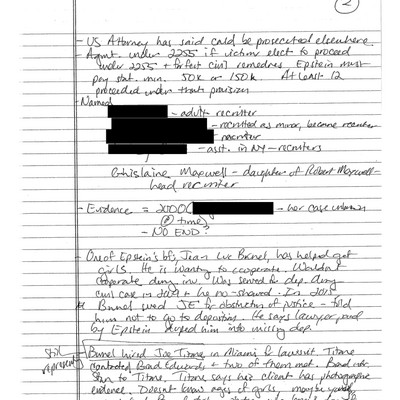 2
- US Attorney has said could be prosecuted elsewhere
- Agmt. under 2255 if victim elect to proceed
under 2255 + forfeit civil remedies Epstein must
pay stat. min. 50k or 150k At least 12
proceeded under that provision
- Named
- adult recruiter
- recruited as minor, became recruiter
- recruiter
- asst. in NY - recruiters
Ghislaine Maxwell - daughter of Robert Maxwell -
head recruiter
- Evidence = - her case unknown
@ time
- NO END?
- One of Epstein's bf, Jean Luc Brunel, has helped get
girls. He is wanting to cooperate. Wouldn't
cooperate during inv. Was served for dep. during
civil case in 2009 + he no-showed. In 2015
Brunel sued JE for obstruction of justice - told
him not to go to deposition. He says lawyer, paid
by Epstein him into missing dep.
still
representing
Brunel hired Joe Titone in Miami for lawsuit. Titone
contacted Brad Edwards + two of them met. Brad
to Titone, Titone says his client has photographic
evidence. Doesn't know ages of girls - maybe